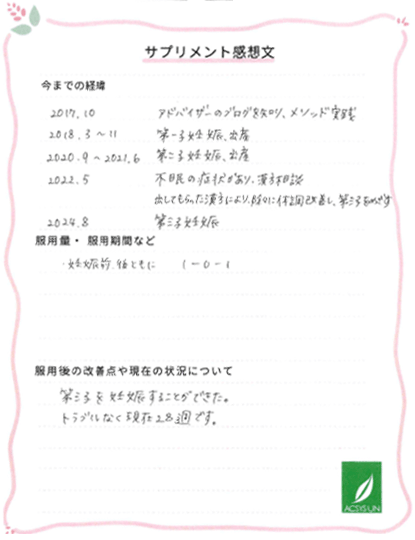 サプリメント感想文
今までの経緯
2017.10 アドバイザーのブログを知り、メソッド実践
2018.3〜11 第一子妊娠、出産
2020.9〜2021.6 第二子妊娠、出産
2022.5 不眠の症状があり、漢方相談
出してもらった漢方により、体調改善し、第三子をめざす
2024.8 第三子妊娠
服用量・服用期間など
・妊娠前、後ともに 1-0-1
服用後の改善点や現在の状況について
第三子を妊娠することができた。
トラブルなく現在28週です。
ACSYS UN